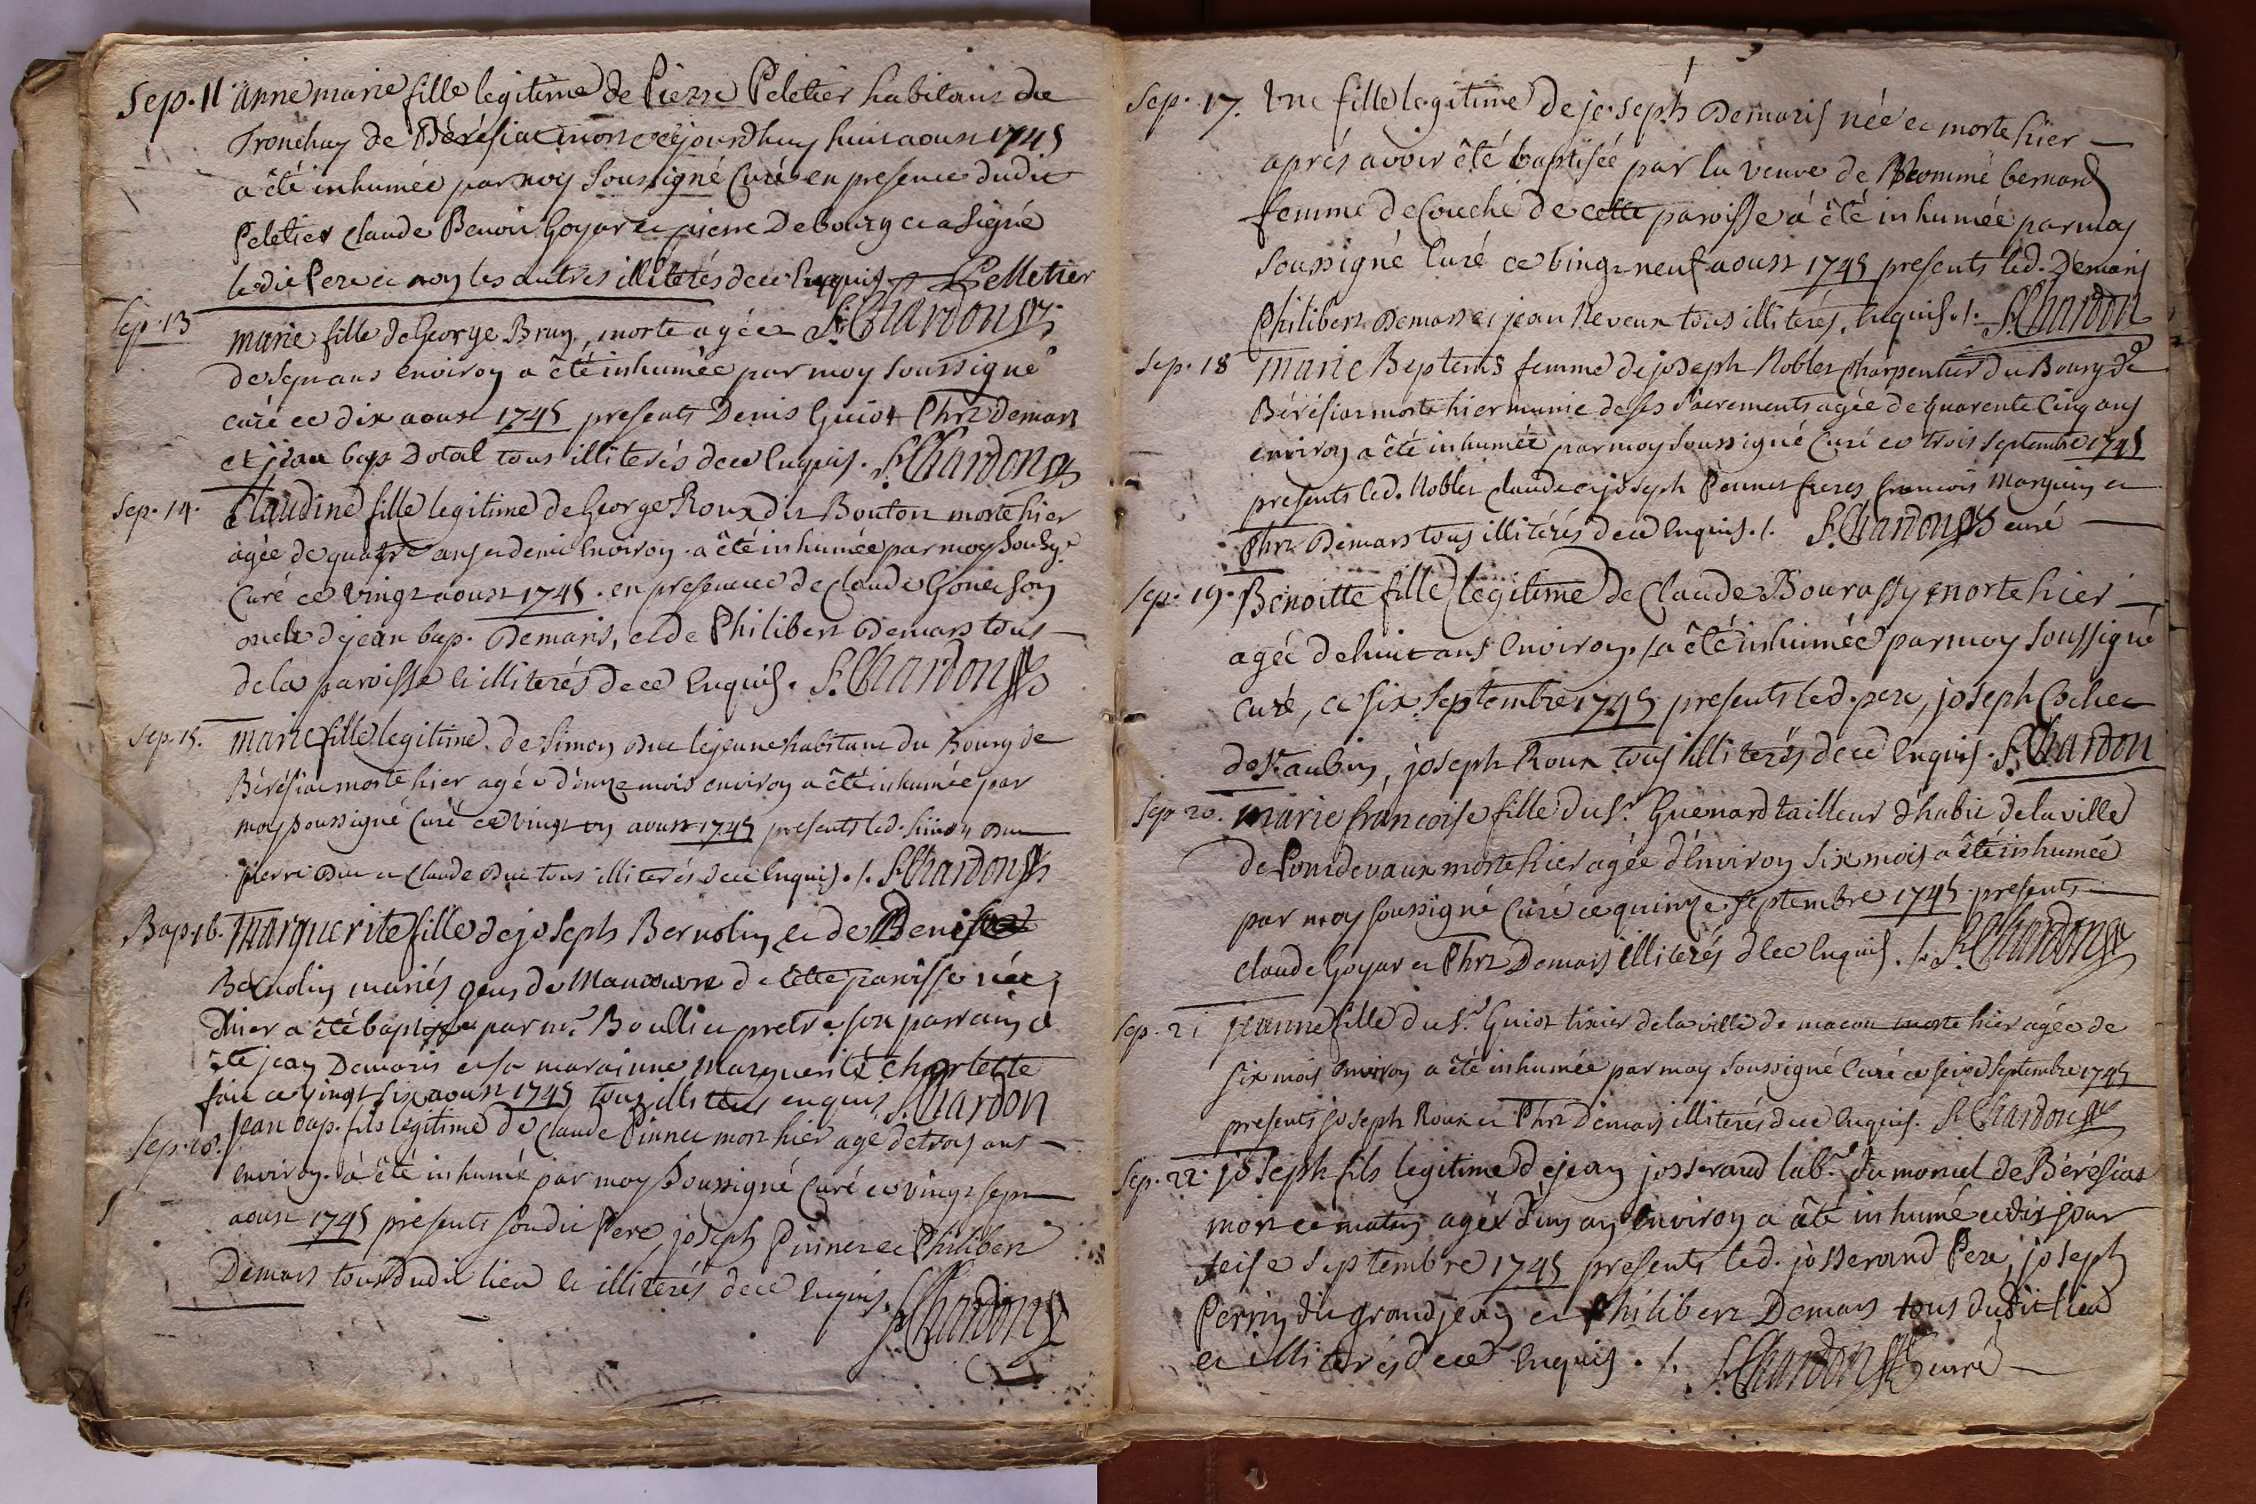 Sep. 11 anne marie fille legitime de Pierre Peletier habitant du
Tronchay de Béréfiat morte cejourdhuy huit aoust 1745
a été inhumée par moy soussigné Curé en presence dudit
Peletier Claude Benoit Goyar et pierre Debourg et a signé
ledit Pere et non les autres illiterés de ce Enquis Pelletier
Sep. 13 marie fille de George Brun, morte agée S. Chardon
de sept ans environ a été inhumée par moy soussigné
curé ce dix aoust 1745 presents Denis Guiot Phrt Demars
et jean bap Dotal tous illiterés de ce Enquis. S. Chardon
Sep. 14. Claudine fille legitime de George Roux dit Bouton morte hier
agée de quatre ans et demi Environ a été inhumée par moy sousg.é
Curé ce vingt aoust 1745. en presence de Claude son
oncle de jean bap. Demaris, et de Philibert Demars tous
de la paroisse et illiterés de ce Enquis. S. Chardon
Sep. 15. marie fille legitime de Simon Duc le jeune habitant du Bourg de
Béréfiat morte hier agée d'onze mois environ a été inhumée par
moy soussigné Curé ce vingt un aoust 1745 presents led. Simon Duc
pierre Duc et Claude Duc tous illiterés de ce Enquis. /. S. Chardon
Bap. 16. Marguerite fille de joseph Bernolin et de Denise
Bernolin mariés gens de Manœuvre de cette paroisse née
dhier a été baptisée par mr. Boullier pretre son parrain a
été jean Demaris et sa marainne Marguerite Charlette
fait ce vingt six aoust 1745 tous illiterés enquis S. Chardon
Sep. jean bap. fils legitime de Claude Pinnet mort hier agé de trois ans
environ. a été inhumé par moy soussigné Curé ce vingt sept
aoust 1745 presents sondit Pere, joseph Pinnet et Philibert
Demars tous dudit lieu et illiterés de ce Enquis. S. Chardon
Sep. 17. Une fille legitime de joseph Demaris née et morte hier
aprés avoir été baptisée par la veuve de Bernard
femme de Couche de cette paroisse a été inhumée par moy
soussigné Curé ce vingt neuf aoust 1745 presents led. Demaris
Philibert Demars et jean Neveux tous illiterés, Enquis. /. S. Chardon
Sep. 18 Marie Beptems femme de joseph Noblet Charpentier du Bourg de
Béréfiat morte hier munie de ses sacrements agée de quarente Cinq ans
environ a été inhumée par moy soussigné Curé ce trois septembre 1745
presents led. Noblet Claude et joseph Ponnet freres francois Marguin et
Phrt Demars tous illitérés de ce Enquis. /. S. Chardon curé
Sep. 19. Benoitte fille legitime de Claude Bourassy morte hier
agée de huit ans Environ. /. a été inhumée par moy soussigné
curé, ce six Septembre 1745 presents led. pere, joseph Cochet
de St. aubin, joseph Roux tous illiterés de ce Enquis. S. Chardon
Sep 20. Marie francoise fille du Sr. Guenard tailleur d'habit de la ville
de Pontdevaux morte hier agée d'Environ Six mois a été inhumée
par moy soussigné Curé ce quinze septembre 1745 presents
claude Goyar et Phrt Demars illiterés de ce Enquis. /. S. Chardon
Sep. 21 jeanne fille du Sr. Guiot tixier de la ville de macon morte hier agée de
six mois Environ a été inhumée par moy soussigné Curé ce seize Septembre 1745
presents joseph Roux et Phrt Demars illiterés de ce Enquis. S. Chardon
Sep. 22. joseph fils legitime de jean josserand labr. du montel de Béréfiat
mort ce matin agé d'un an Environ a été inhumé cedit jour
seise septembre 1745 presents led. josserand Pere, joseph
Perrin dit grandjean et Philibert Demars tous dudit lieu
et illiterés de ce Enquis. /. S. Chardon curé